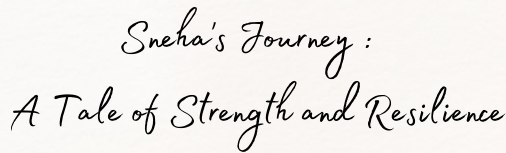 Sneha's Journey :
A Tale of Strength and Resilience